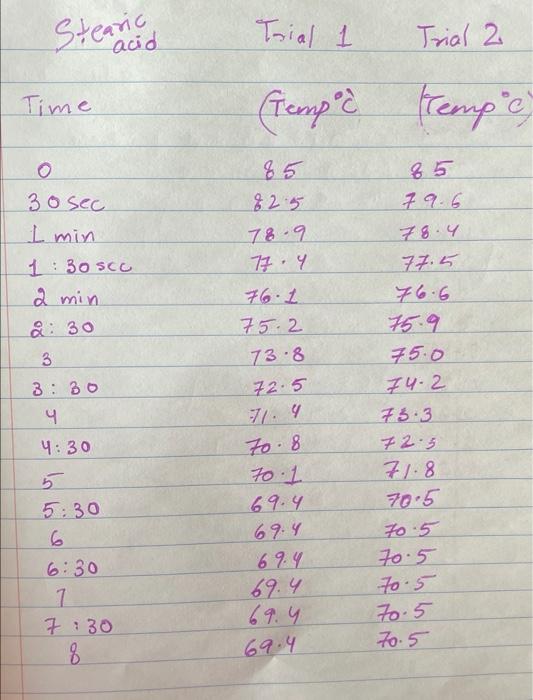 Stearic acid Trial 1 Trial 2
Time (Temp°C) (Temp°C)
0 85 85
30 sec 82.5 79.6
1 min 78.9 78.4
1 : 30 sec 77.4 77.5
2 min 76.1 76.6
2 : 30 75.2 75.9
3 73.8 75.0
3 : 30 72.5 74.2
4 71.4 73.3
4:30 70.8 72.5
5 70.1 71.8
5:30 69.4 70.5
6 69.4 70.5
6:30 69.4 70.5
7 69.4 70.5
7 : 30 69.4 70.5
8 69.4 70.5